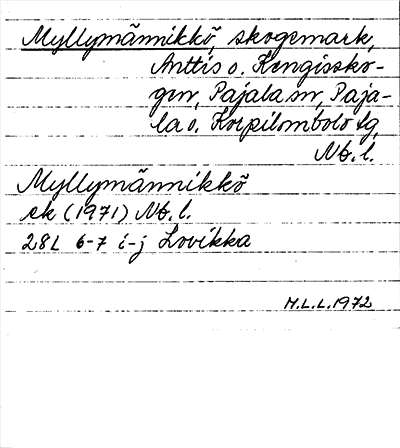 Myllymännikkö, skogsmark,
Anttis o. Kengissko-
gen, Pajala sn, Paja-
la o. Korpilombolo tg,
Nb. l.
Myllymännikkö
ek (1971) Nb. l.
28L 6-7 i-j Lovikka
M.L.L. 1972